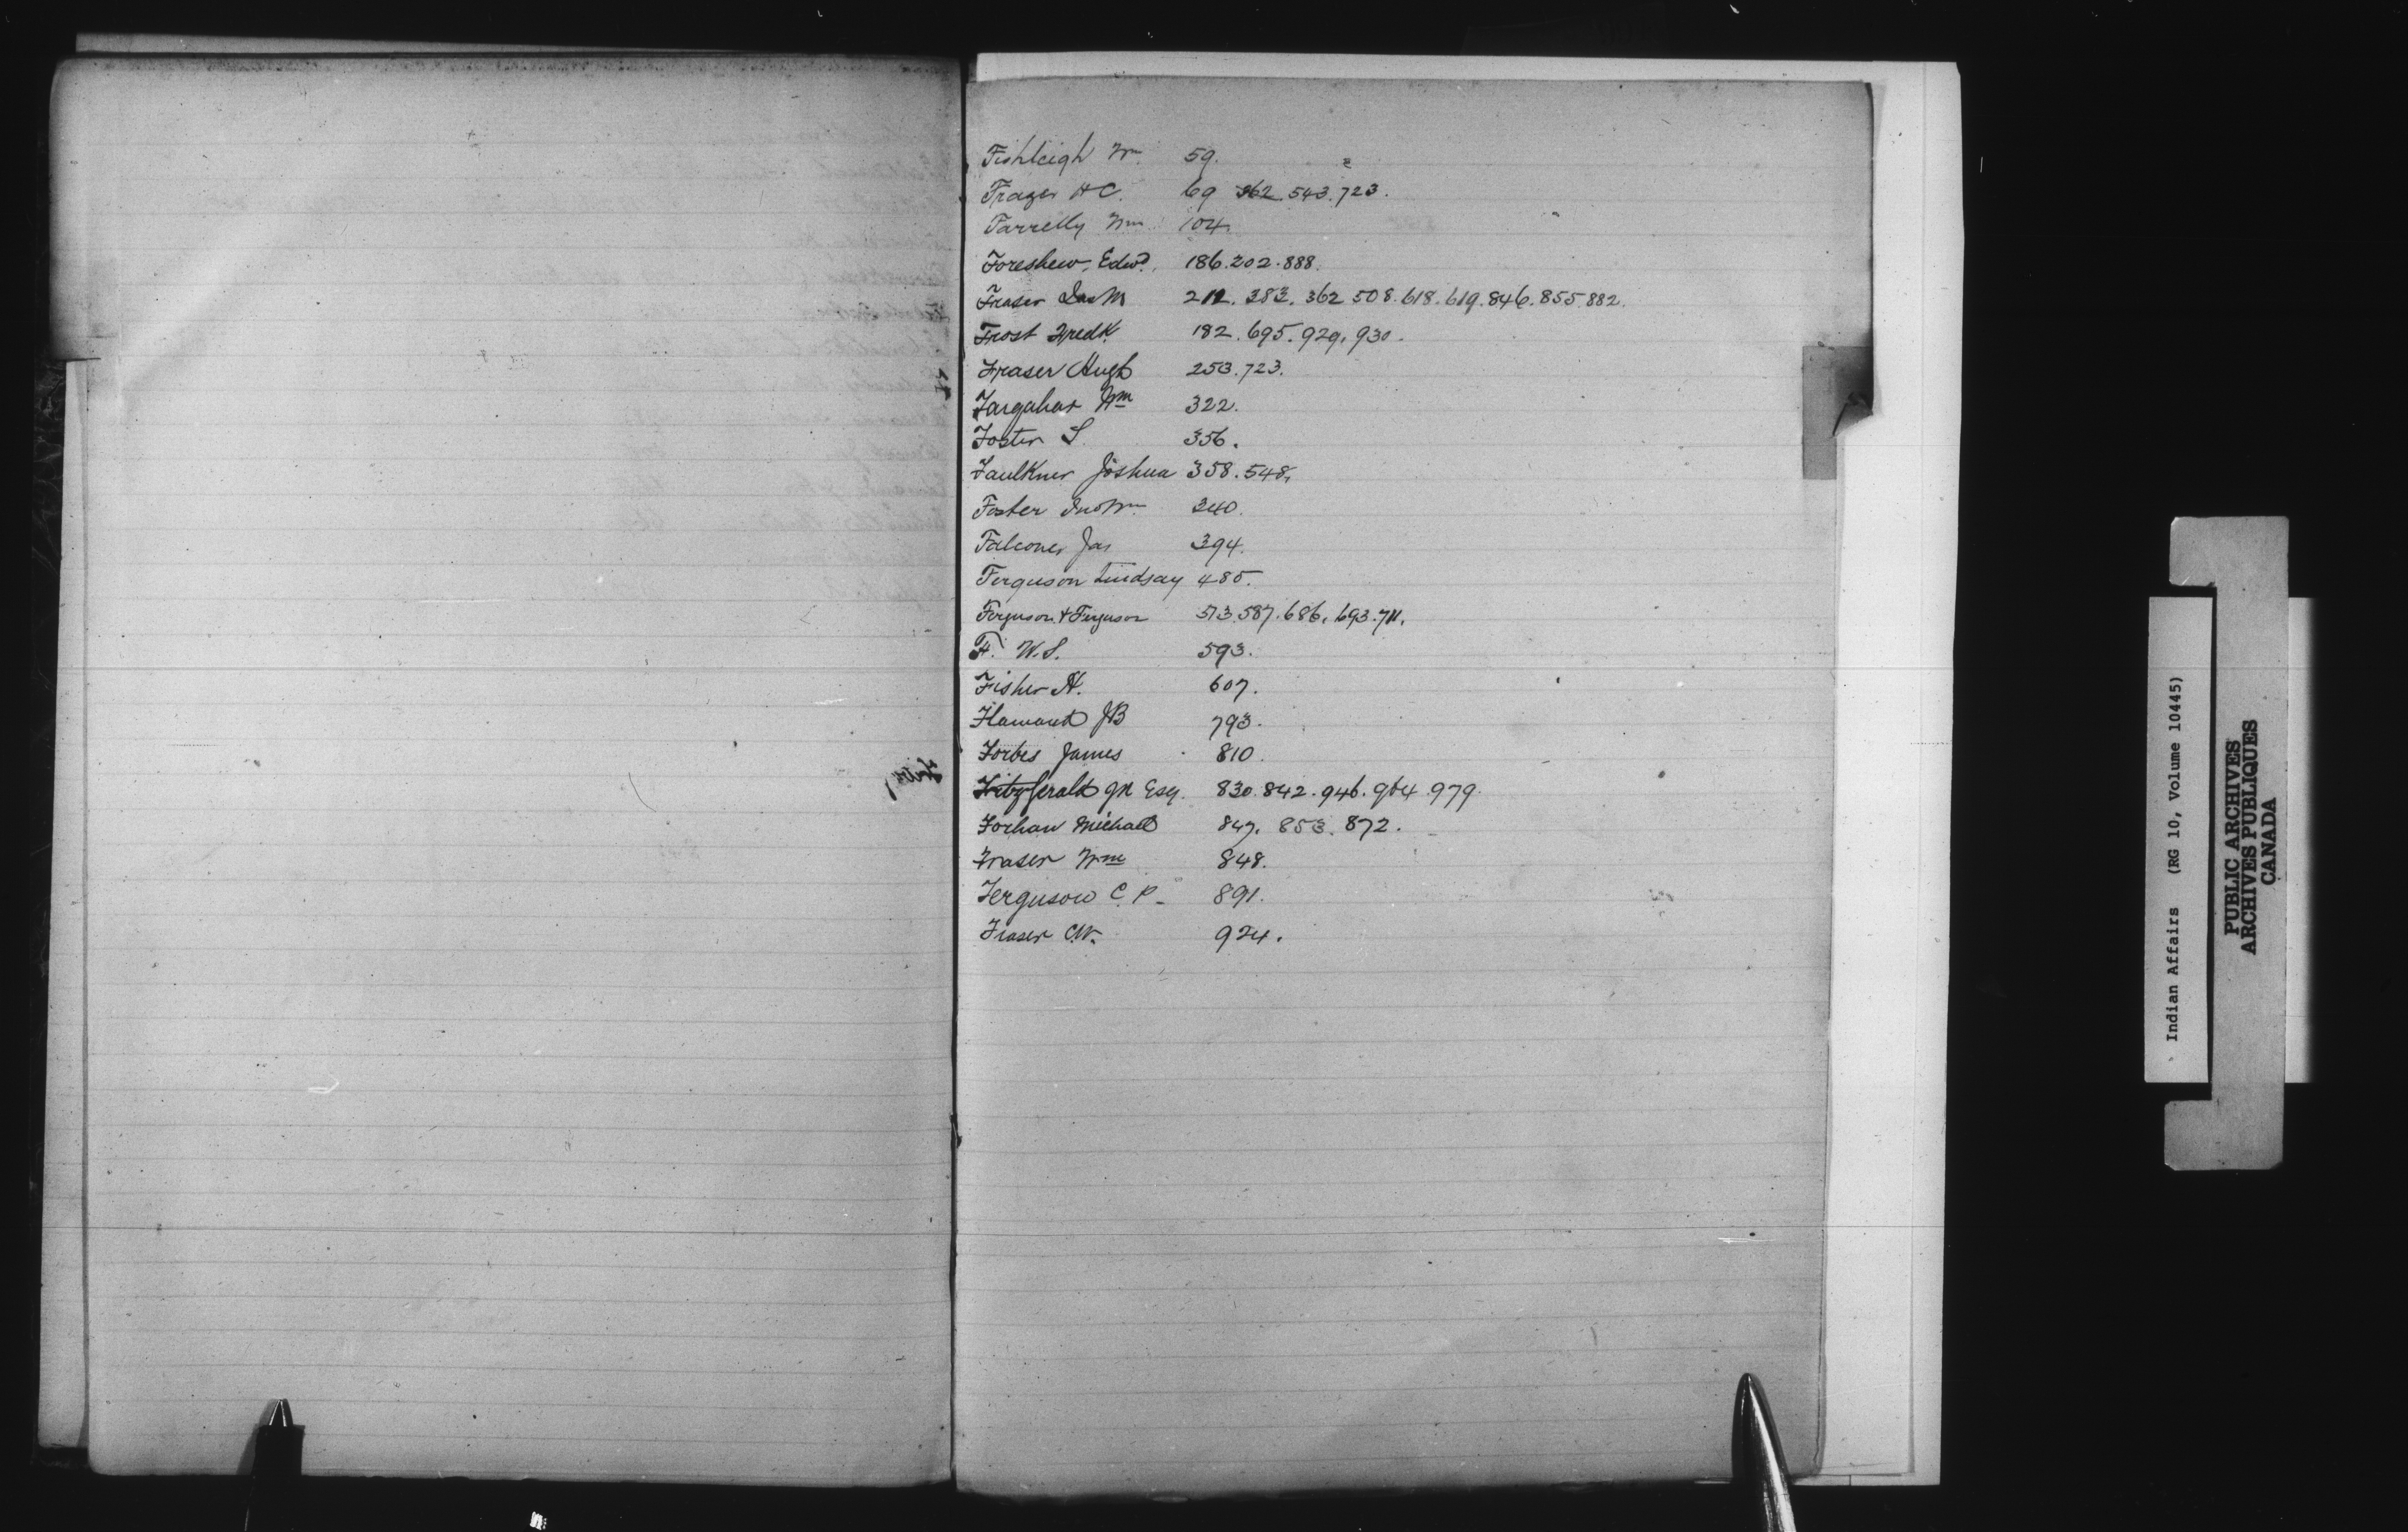 Fishleigh Wm. 59.
Frazer H C. 69 362. 543. 723.
Farrelly Wm 104.
Foreshew, Edwd. 186. 202. 888.
Fraser Jas M 212. 383. 362 508. 618. 619. 846. 855. 882.
Frost Fredk. 182. 695. 929. 930.
Fraser Hugh 253. 723.
Farquhar Wm 322.
Foster S. 356.
Faulkner Joshua 358. 548.
Foster Jno Wm 340.
Falconer Jas 394.
Ferguson Lindsay 485.
Ferguson & Ferguson 513. 587. 686. 693. 711.
F. W. S. 593.
Fisher H. 607.
Flamand JB 793.
Forbes James 810.
Fitzgerald Esq. 830. 842. 946. 964. 979.
Forhan Michael 847. 853. 872.
Fraser Wm 848.
Ferguson C. P. 891.
Fraser C.W. 924.
Indian Affairs (RG 10, Volume 10445)
PUBLIC ARCHIVES
ARCHIVES PUBLIQUES
CANADA